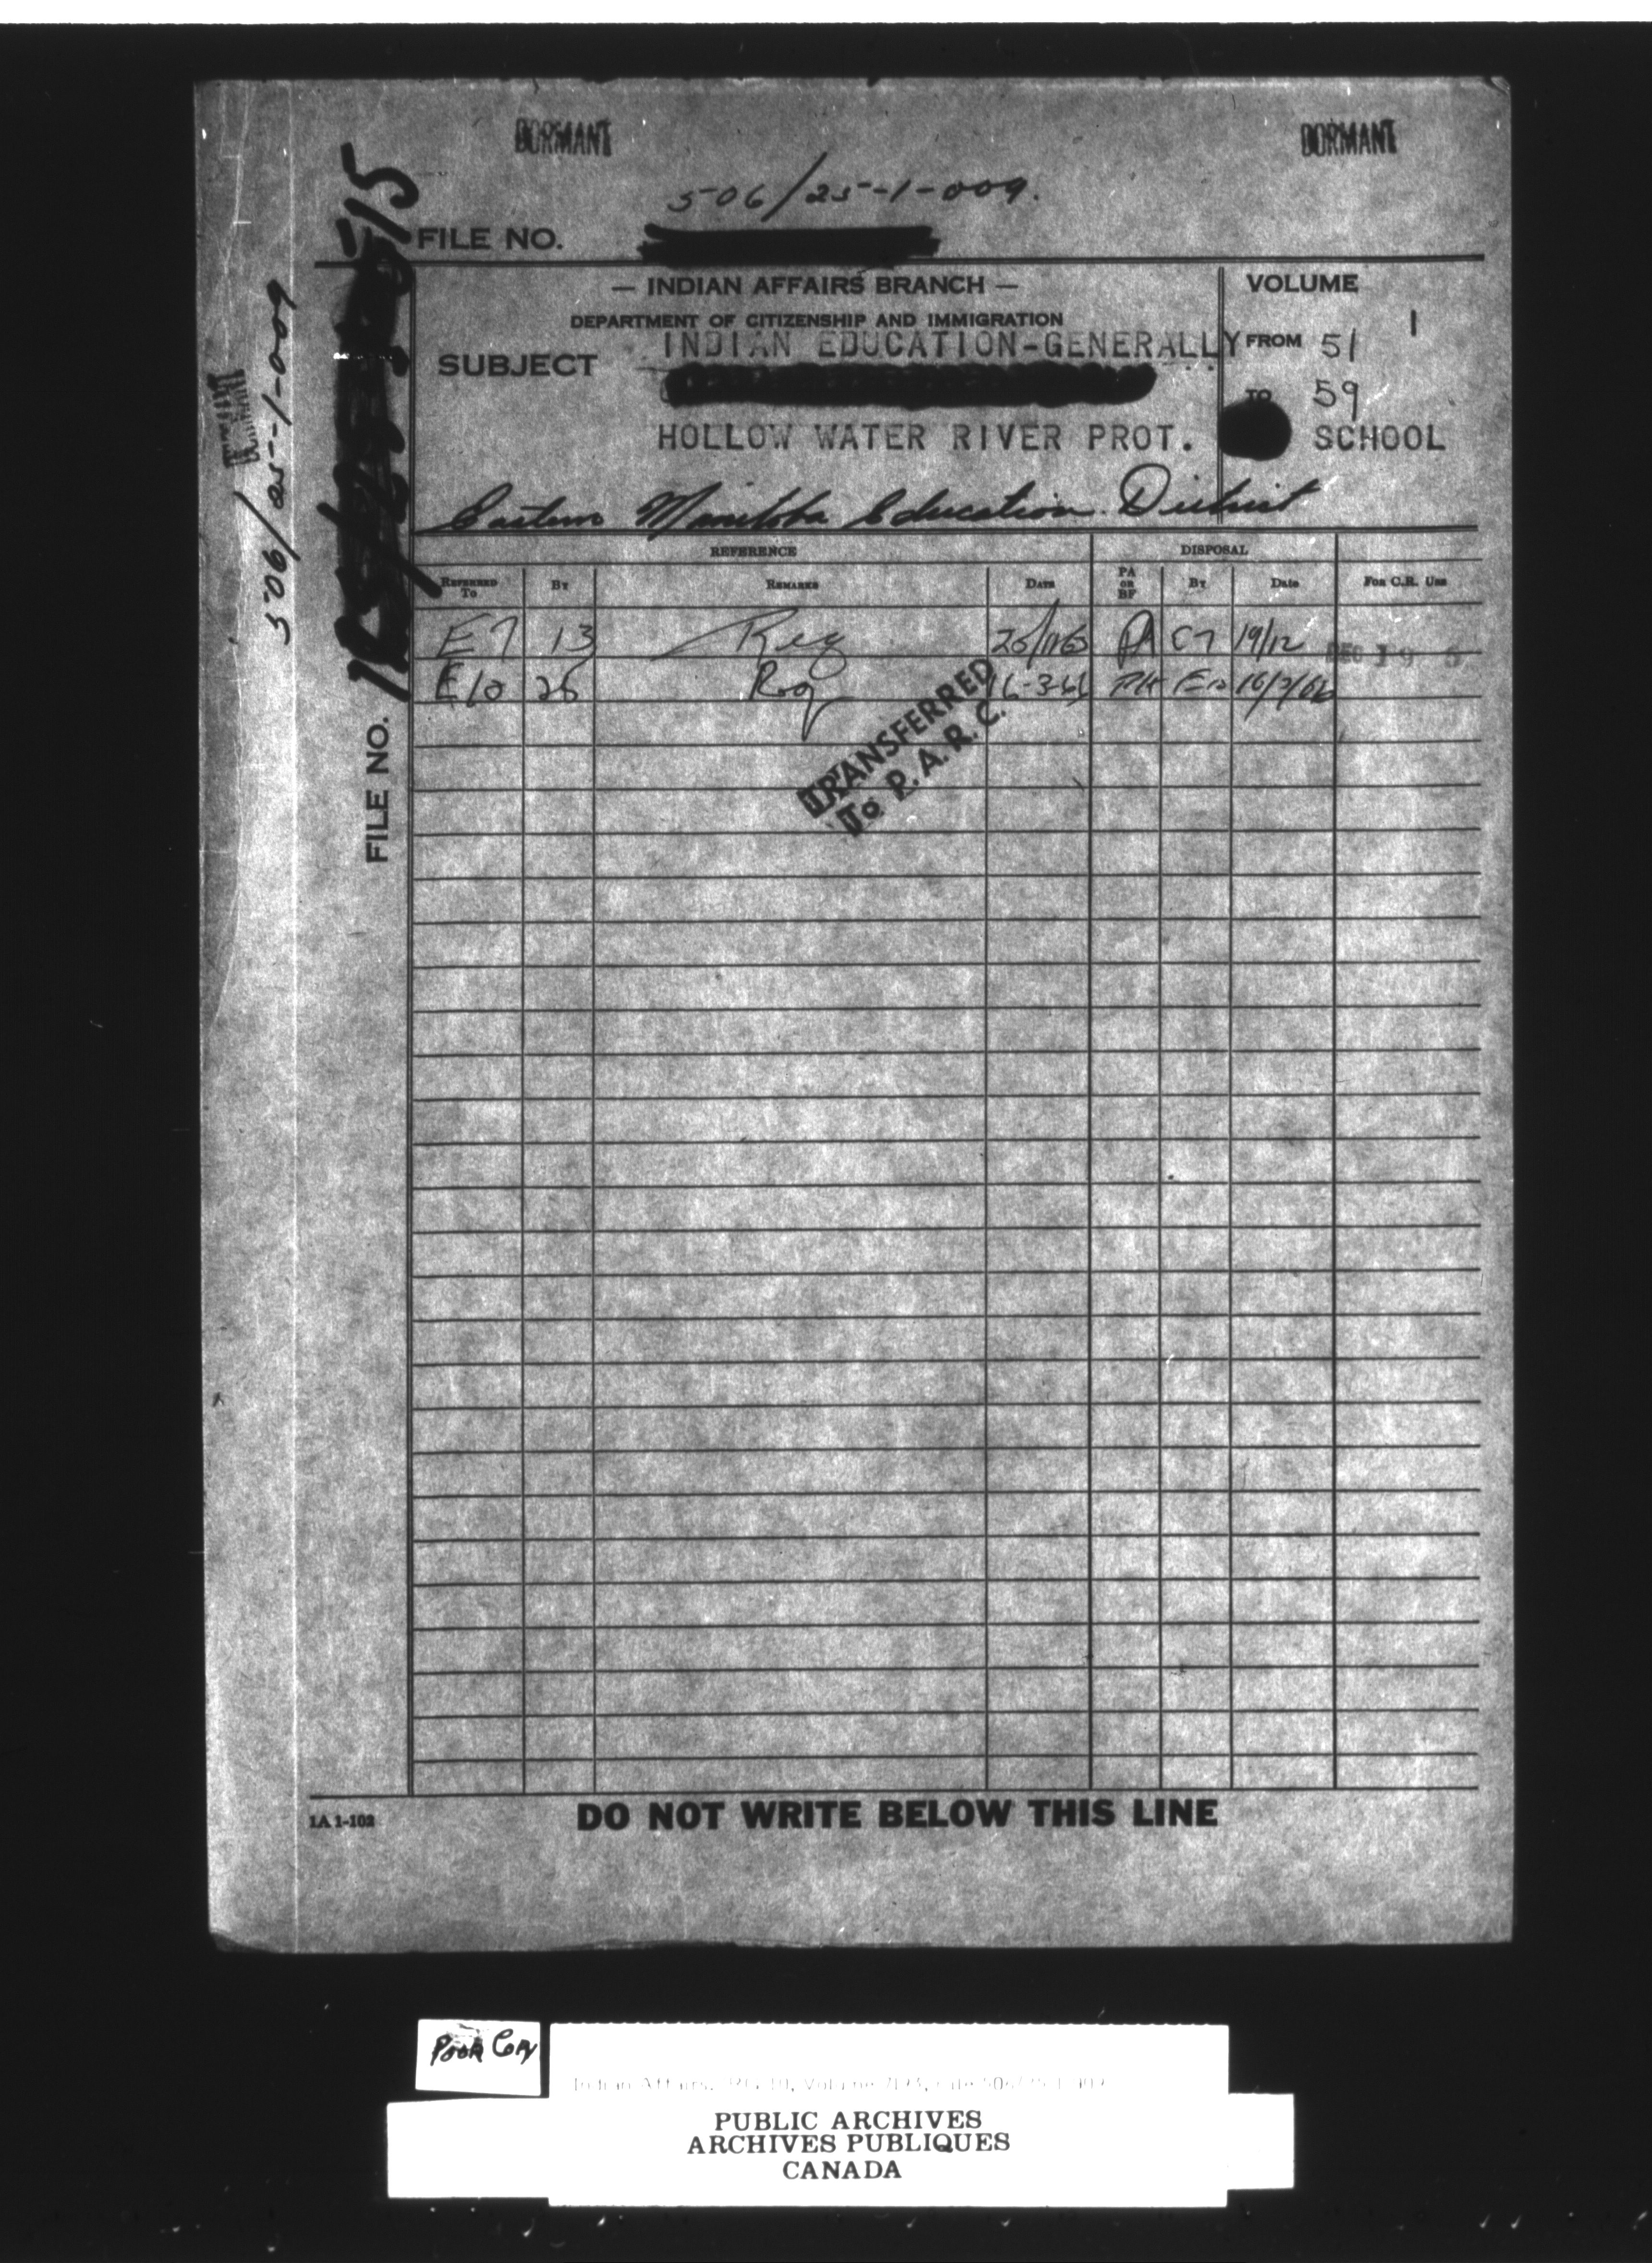 DORMANT DORMANT
506/25-1-009.
FILE NO.
— INDIAN AFFAIRS BRANCH —
DEPARTMENT OF CITIZENSHIP AND IMMIGRATION
SUBJECT INDIAN EDUCATION-GENERALLY
HOLLOW WATER RIVER PROT. SCHOOL
Eastern Manitoba Education District
VOLUME 1
FROM 51
TO 59
DORMANT
506/25-1-009
FILE NO.
REFERENCE DISPOSAL
REFERRED TO BY REMARKS DATE PA OR BF BY Date For C.R. Use
E7 13 Req PA C7 19/12 DEC 19
E10 26 Req 16-3-61 PA E10
TRANSFERRED
To P.A.R.C.
1A 1-102
DO NOT WRITE BELOW THIS LINE
Poor Copy
Indian Affairs, RG 10, Volume
PUBLIC ARCHIVES
ARCHIVES PUBLIQUES
CANADA